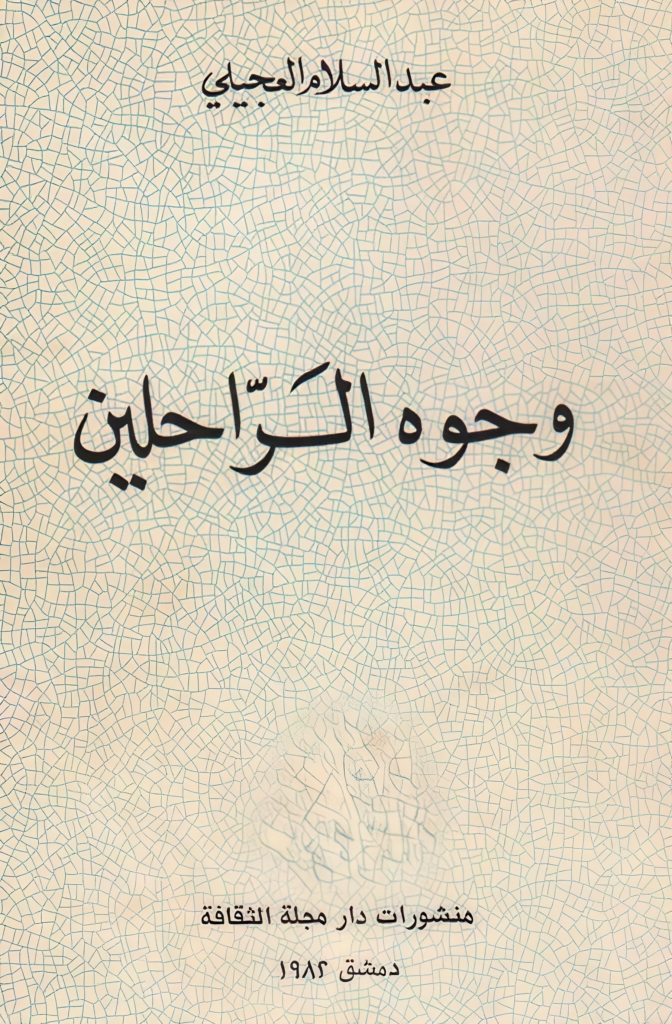 عبد السلام العجيلي
وجوه الرَّاحلين
منشورات دار مجلة الثقافة
دمشق ١٩٨٢